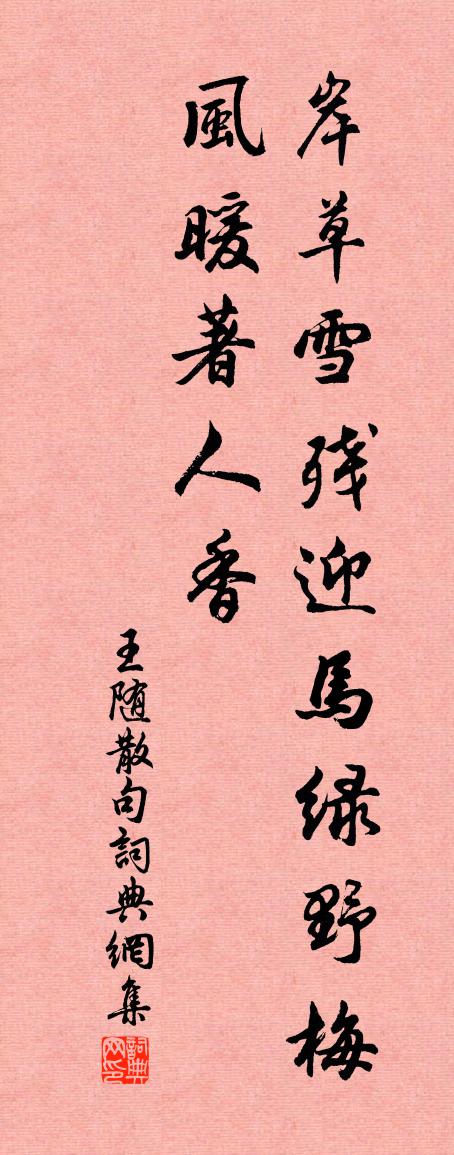 岸草雪残迎馬緑野梅
風暖著人香
王随散句詞典網集
詞典网印